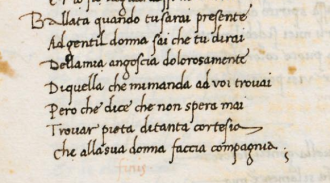 Ballata quando tu sarai presente
Ad gentil donna sai che tu dirai
Della mia angoscia dolorosamente
Di quella che mi manda ad voi trovai
Pero che dice che non spera mai
Trovar pieta di tanta cortesia
Che alla sua donna faccia compagnia